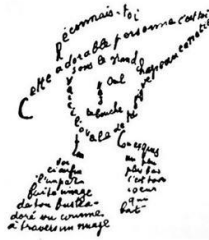 Reconnais-toi
Cette adorable personne c'est toi
sous le grand chapeau canotier
Œil
La bouche
l'ovale de ta
Cou exquis
Voi
ci enfin
l'impar
faite image
de ton buste a-
doré vu comme
à travers un nuage
un peu
plus bas
c'est ton
cœur
qui
bat